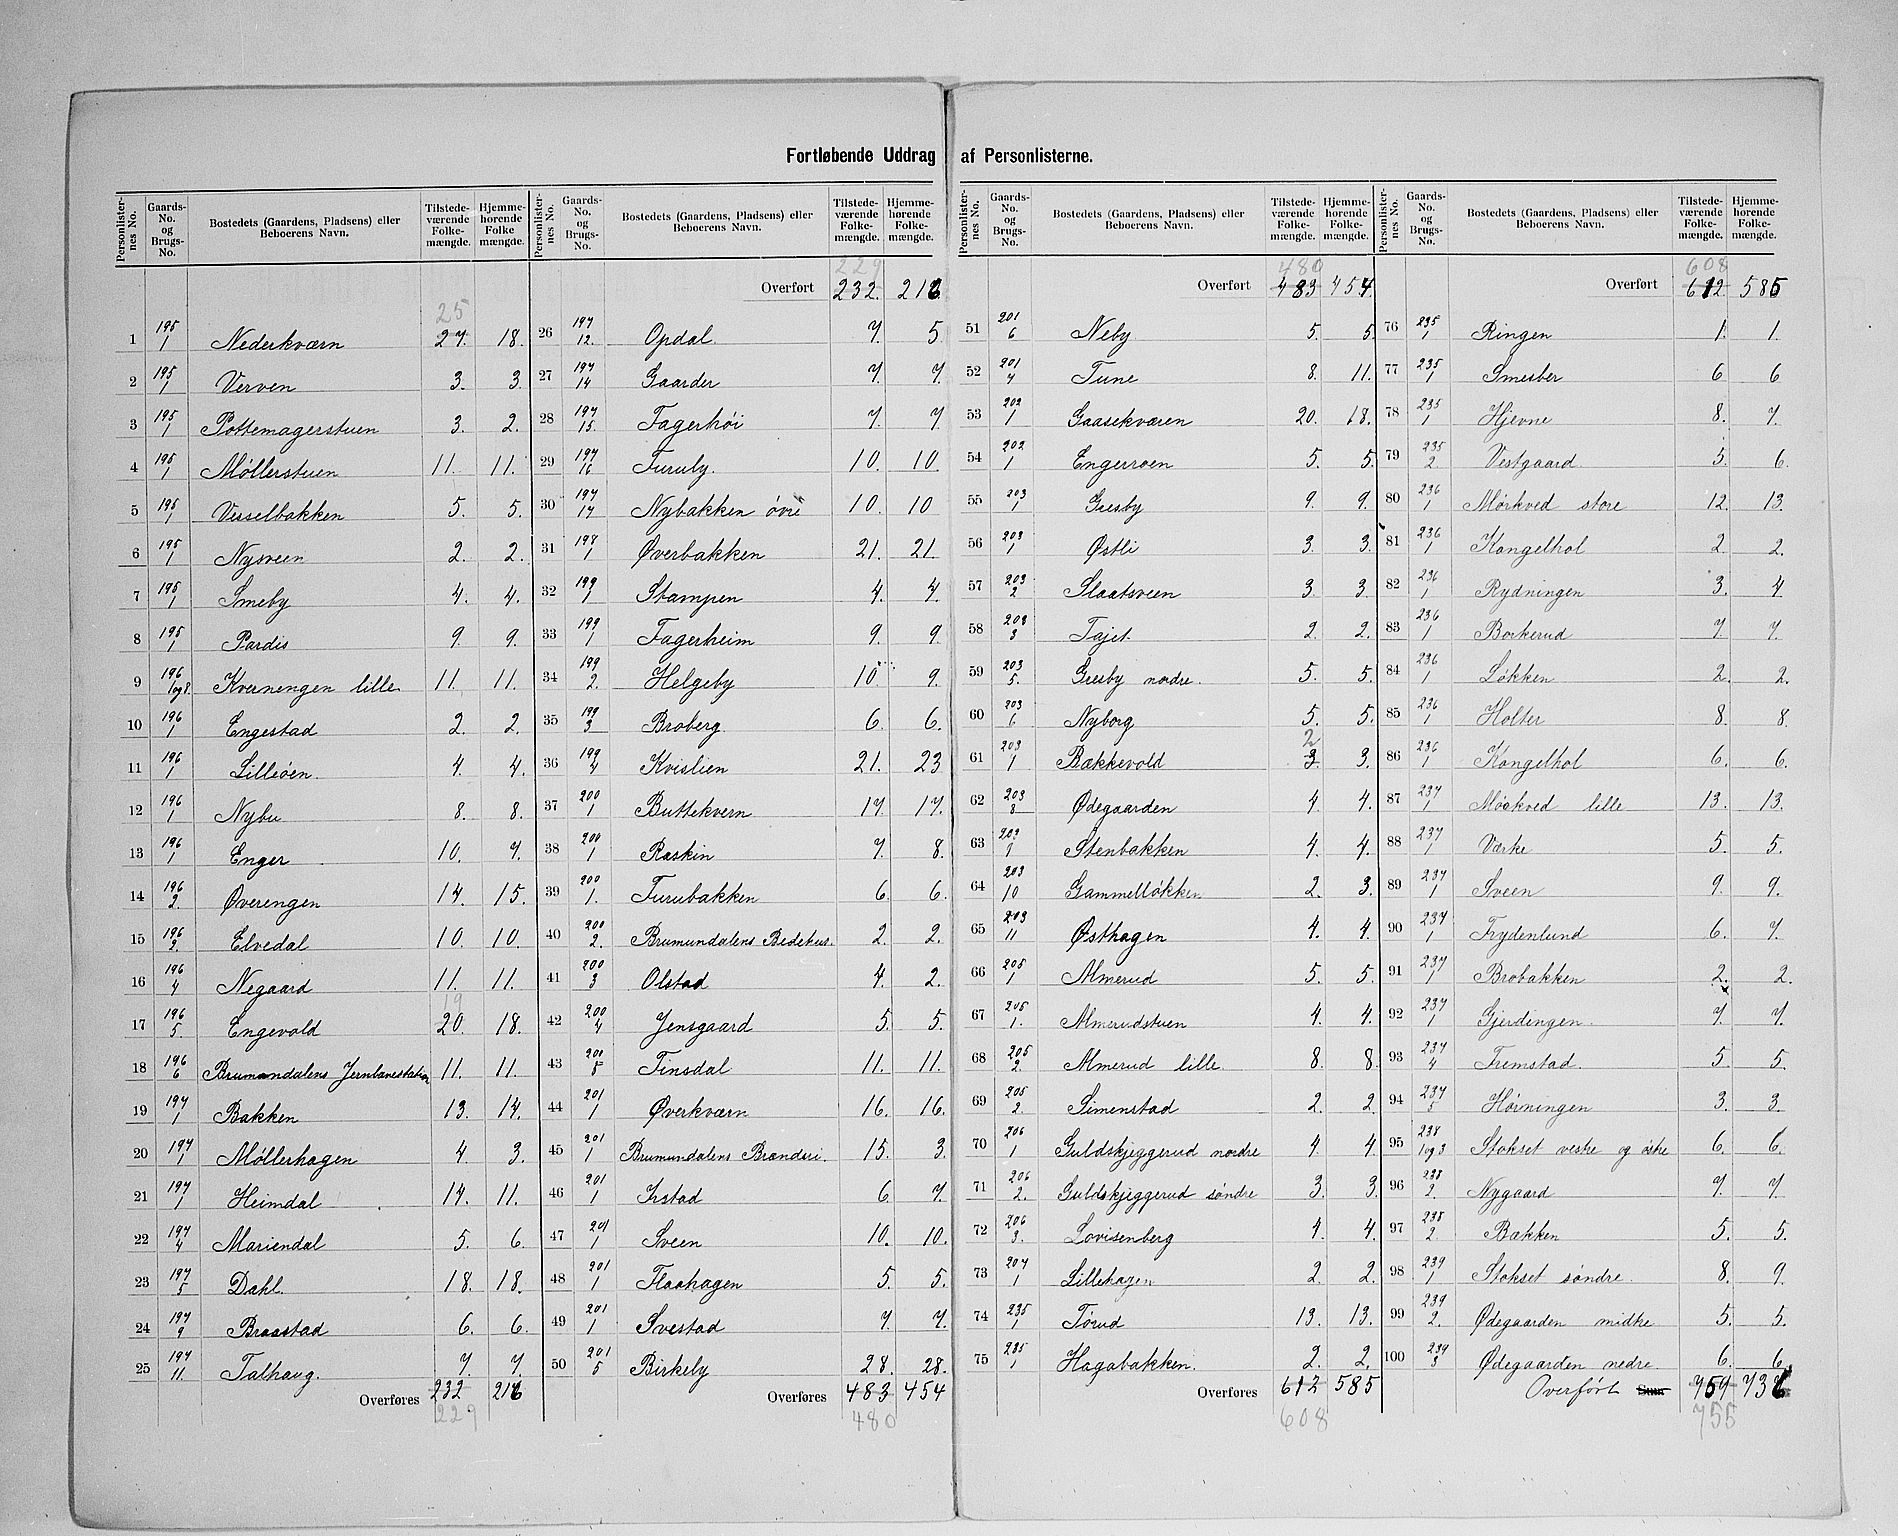 Fortløbende Uddrag af Personlisterne.
Personlisternes No. | Gaards-No. og Brugs-No. | Bostedets (Gaardens, Pladsens) eller Beboerens Navn. | Tilstedeværende Folkemængde. | Hjemmehørende Folkemængde.
25
1 195/1 Nederkværn 27. 18.
2 195/1 Verven 3. 3.
3 195/1 Pottemagerstuen 3. 2.
4 195/1 Møllerstuen 11. 11.
5 195/1 Vesselbakken 5. 5.
6 195/1 Nysveen 2. 2.
7 195/1 Smeby 4. 4.
8 195/1 Pardis 9. 9.
9 196/1og8. Kvernengen lille 11. 11.
10 196/1 Engestad 2. 2.
11 196/1 Lilleøen. 4. 4.
12 196/1 Nybu 8. 8.
13 196/1 Enger 10. 7.
14 196/2. Øverengen 14. 15.
15 196/2. Elvedal 10. 10.
16 196/4 Negaard 11. 11.
19
17 196/5 Engevold 20. 18.
18 196/6 Brumundalens Jernbanestation 11. 11.
19 197/1 Bakken 13. 14.
20 197/1 Møllerhagen 4. 3.
21 197/1 Heimdal 14. 11.
22 197/4 Mariendal 5. 6.
23 197/5 Dahl. 18. 18.
24 197/9 Braastad 6. 6.
25 197/11. Talhaug. 7. 7.
Overføres 232 216
229
229
Overført 232. 216
26 197/12. Opdal. 7. 5.
27 197/14 Gaarder 7. 7.
28 197/15 Fagerhøi 7. 7.
29 197/16 Furuly. 10. 10
30 197/17 Nybakken øvre 10. 10
31 198/1 Øverbakken 21. 21.
32 199/1 Stampen 4. 4.
33 199/1 Fagerheim 9. 9.
34 199/2. Helgeby 10 9.
35 199/3 Broberg. 6. 6.
36 199/4 Kvislien 21. 23
37 200/1 Buttekvern 17. 17.
38 200/1 Raskin 7. 8.
39 200/1. Furubakken 6. 6.
40 200/2. Brumundalens Bedehus. 2. 2.
41 200/3 Olstad 4. 2.
42 200/4 Jensgaard 5. 5.
43 200/8 Tinsdal 11. 11.
44 201/1 Øverkværn 16. 16.
45 201/1 Brumundalens Brænderi. 15. 3.
46 201/1 Irstad 6. 7.
47 201/1 Sveen 10. 10.
48 201/1 Flaahagen 5. 5.
49 201/1 Svestad 7. 7.
50 201/5 Birkeby 28. 28.
Overføres 483 454
480
480
Overført 483 454.
51 201/6 Neby 5. 5.
52 201/7 Tune 8. 11.
53 202/1 Gaasekværen 20. 18.
54 202/1 Engerroen 5. 5.
55 203/1 Gresby 9. 9.
56 203/1 Østli 3. 3.
57 203/2 Slaatsveen 3 3.
58 203/3 Tajet. 2. 2.
59 203/5. Gresby nordre. 5. 5.
60 203/6 Nyborg 5. 5.
2
61 203/1 Bækkevold 3. 3.
62 203/8 Ødegaarden 4. 4.
63 203/9 Stenbakken 4. 4.
64 203/10 Gammelløkken 2. 3.
65 203/11 Østhagen 4. 4.
66 205/1 Almerud 5. 5.
67 205/1. Almerudstuen 4. 4.
68 205/2. Almerud lille. 8. 8.
69 205/2. Simenstad 2. 2.
70 206/1 Guldskjeggerud nordre 4. 4.
71 206/2. Guldskjeggerud søndre 3. 3.
72 206/3. Lovisenberg 4. 4.
73 207/1 Lillehagen 2. 2.
74 235/1 Tørud 13. 13.
75 235/1 Hagabakken. 2. 2.
Overføres 612 585
608
608
Overført 612 585
76 235/1 Ringen 1. 1.
77 235/1 Smesber 6 6
78 235/1 Hjevne 8. 7.
79 235/2 Vestgaard. 5. 6.
80 236/1 Mørkved store 12. 13.
81 236/1 Kongelhol 2. 2.
82 236/1 Rydningen 3. 4
83 236/1 Borkerud 7. 7.
84 236/1 Løkken 2. 2.
85 236/1 Holter 8. 8.
86 236/1 Kongelhol 6. 6.
87 237/1 Mørkved lille 13. 13.
88 237/1 Værke 5. 5.
89 237/1 Sveen 9. 9.
90 237/1 Frydenlund 6. 7.
91 237/1 Brobakken 2. 2.
92 237/1 Gjerdingen. 7. 7.
93 237/4 Fremstad. 5. 5.
94 237/5 Hørningen 3. 3.
95 238/1og3 Stokset vestre og østre 6. 6.
96 238/2. Nygaard 7. 7
97 238/2. Bakken 5. 5.
98 239/1 Stokset søndre. 8. 9.
99 239/2. Ødegaarden midtre 5. 5.
100 239/3 Ødegaarden nedre 6. 6.
Overført Sum 759 736
755